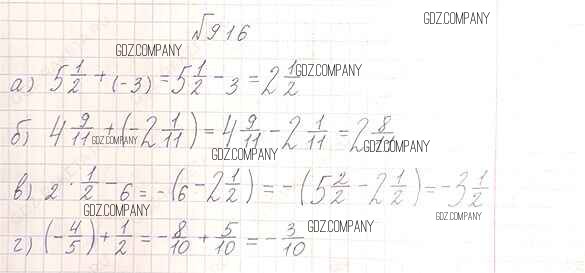 №916
GDZ.COMPANY
GDZ.COMPANY
а) 5 1/2 + (-3) = 5 1/2 - 3 = 2 1/2
GDZ.COMPANY
б) 4 9/11 + (-2 1/11) = 4 9/11 - 2 1/11 = 2 8/11
GDZ.COMPANY
GDZ.COMPANY
GDZ.COMPANY
в) 2 · 1/2 - 6 = -(6 - 2 1/2) = -(5 2/2 - 2 1/2) = -3 1/2
GDZ.COMPANY
GDZ.COMPANY
г) (-4/5) + 1/2 = -8/10 + 5/10 = -3/10
GDZ.COMPANY